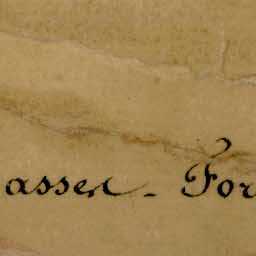 assen - For